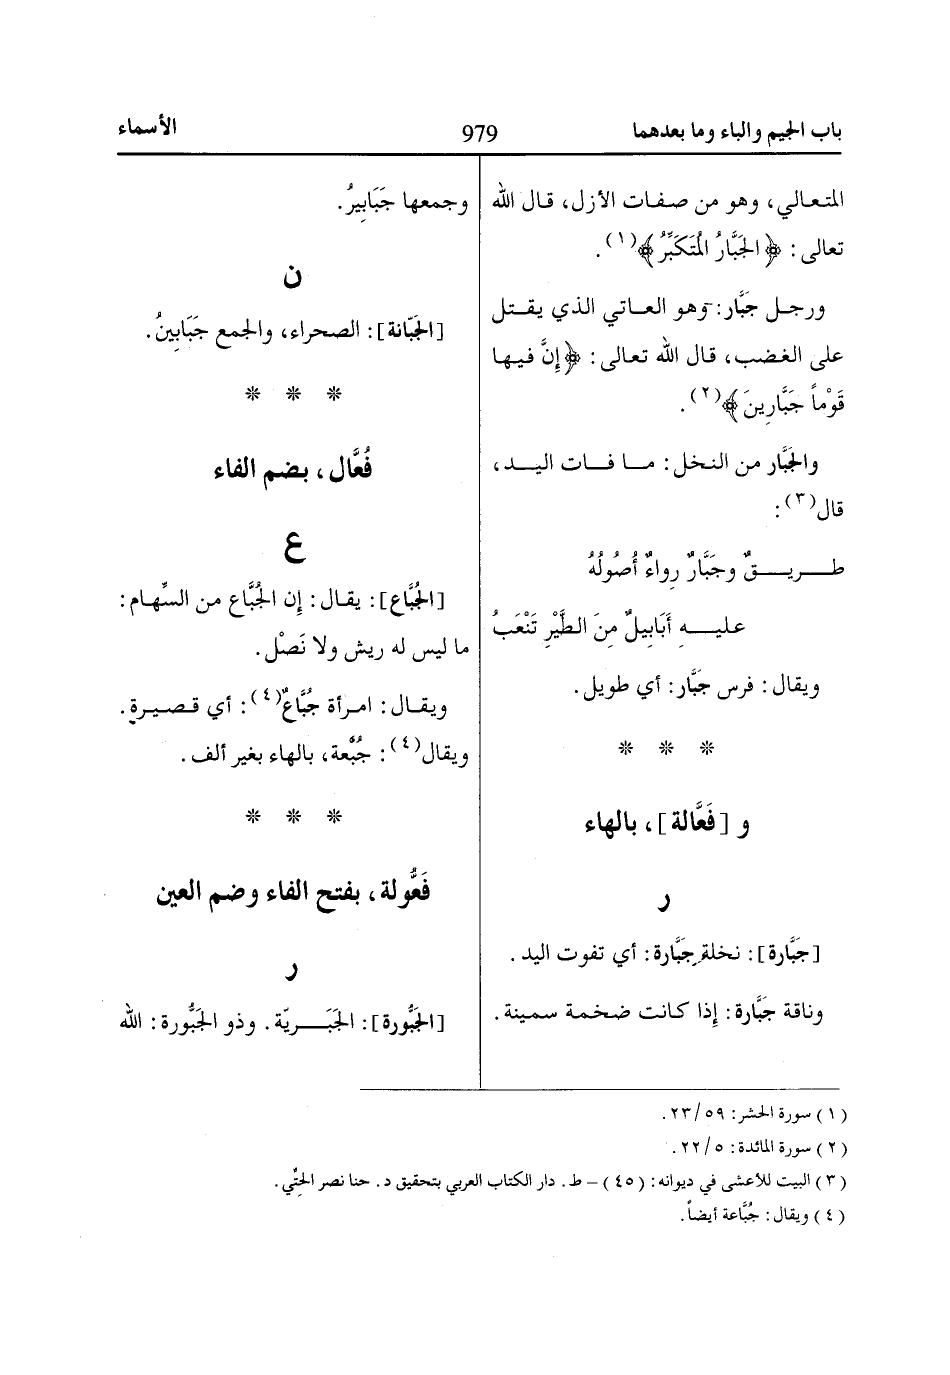 باب الجيم والباء وما بعدهما 979 الأسماء
المتعالي، وهو من صفات الأزل، قال الله
تعالى: ﴿الجَبَّارُ المُتَكَبِّرُ﴾(١).
ورجل جَبَّار: وهو العاتي الذي يقتل
على الغضب، قال الله تعالى: ﴿إِنَّ فيها
قَوْماً جَبَّارِينَ﴾(٢).
والجَبَّار من النخل: ما فات اليد،
قال(٣):
طريقٌ وجَبَّارٌ رواءٌ أُصُولُهُ
عليه أَبَابيلٌ مِنَ الطَّيْرِ تَنْعَبُ
ويقال: فرس جَبَّار: أي طويل.
* * *
و [فَعَّالة]، بالهاء
ر
[جَبَّارة]: نخلة جَبَّارة: أي تفوت اليد.
وناقة جَبَّارة: إذا كانت ضخمة سمينة.
وجمعها جَبَابِيرُ.
ن
[الجَبّانة]: الصحراء، والجمع جَبَابِينُ.
* * *
فُعَّال، بضم الفاء
ع
[الجُبَّاع]: يقال: إن الجُبَّاع من السِّهام:
ما ليس له ريش ولا نَصْل.
ويقال: امرأة جُبَّاعٌ(٤): أي قصيرة.
ويقال(٤): جُبَّعة، بالهاء بغير ألف.
* * *
فَعُّولة، بفتح الفاء وضم العين
ر
[الجَبُّورة]: الجَبَرِيّة. وذو الجَبُّورة: الله
(١) سورة الحشر: ٢٣/٥٩.
(٢) سورة المائدة: ٢٢/٥.
(٣) البيت للأعشى في ديوانه: (٤٥) – ط. دار الكتاب العربي بتحقيق د. حنا نصر الحتّي.
(٤) ويقال: جُبَّاعة أيضاً.